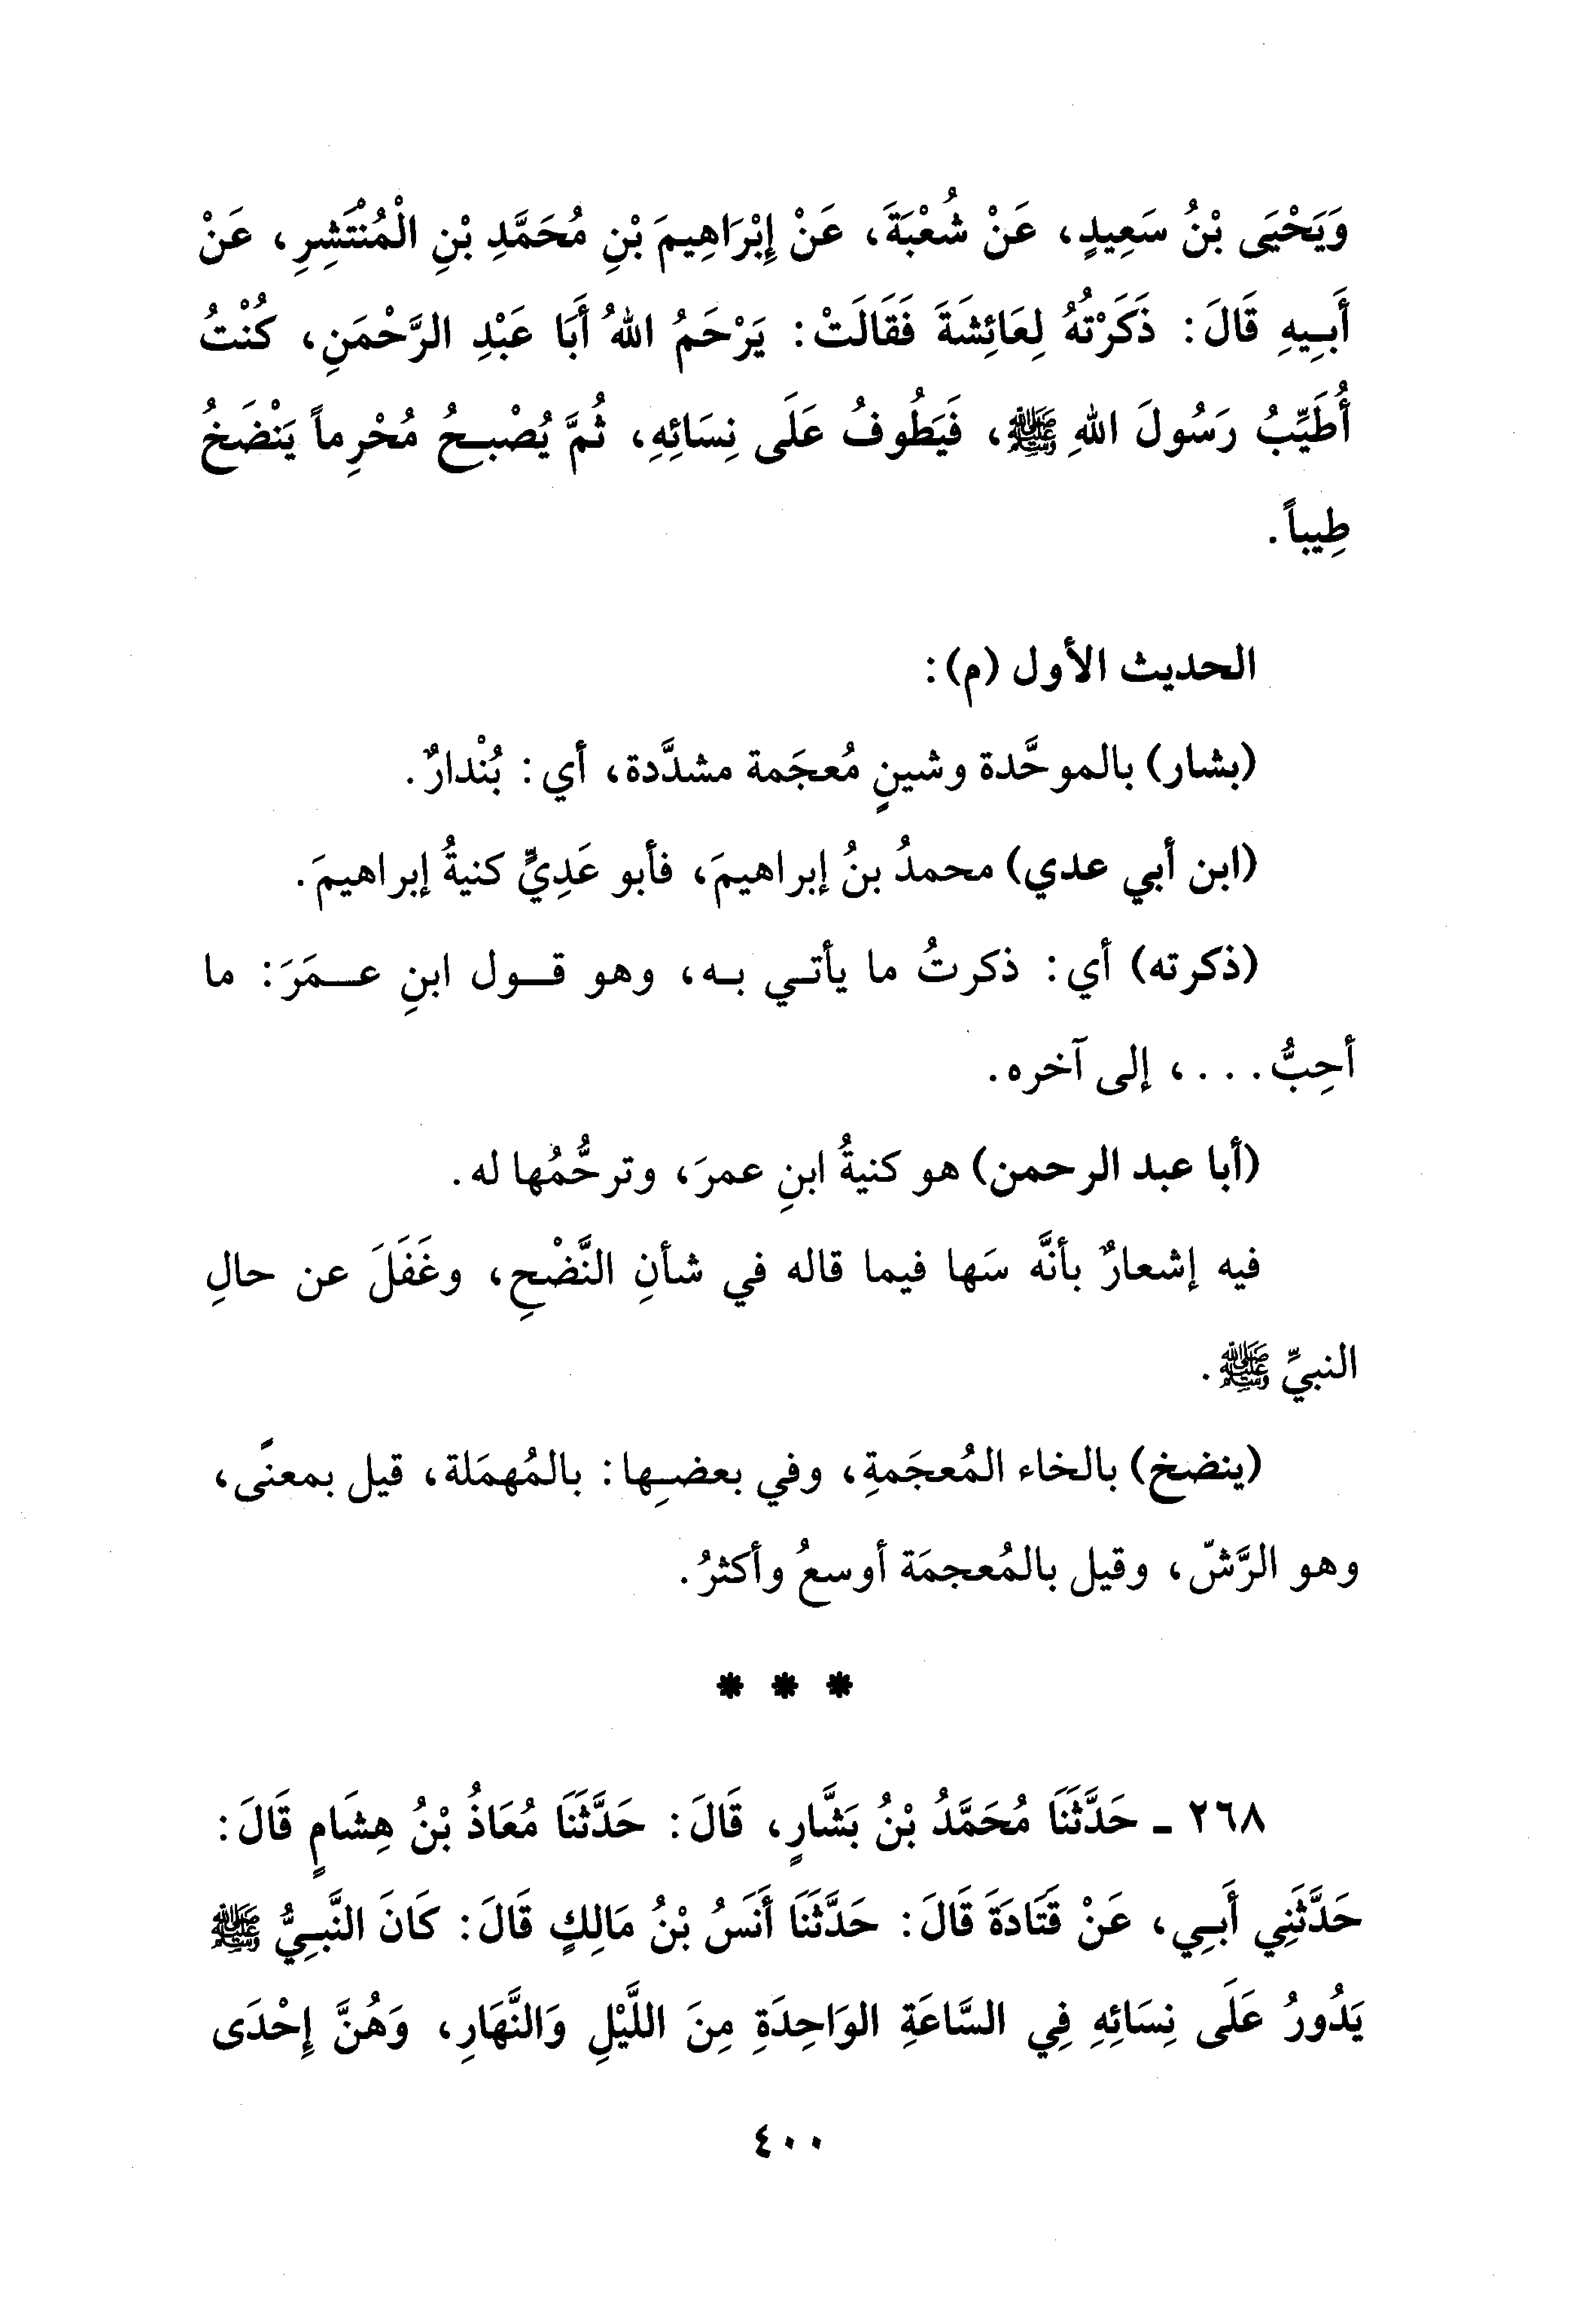 وَيَحْيَى بْنُ سَعِيدٍ، عَنْ شُعْبَةَ، عَنْ إِبْرَاهِيمَ بْنِ مُحَمَّدِ بْنِ الْمُنْتَشِرِ، عَنْ
أَبِيهِ قَالَ: ذَكَرْتُهُ لِعَائِشَةَ فَقَالَتْ: يَرْحَمُ اللهُ أَبَا عَبْدِ الرَّحْمَنِ، كُنْتُ
أُطَيِّبُ رَسُولَ اللهِ ﷺ، فَيَطُوفُ عَلَى نِسَائِهِ، ثُمَّ يُصْبِحُ مُحْرِماً يَنْضَخُ
طِيباً.
الحديث الأول (م):
(بشار) بالموحَّدة وشينٍ مُعجَمة مشدَّدة، أي: بُنْدارٌ.
(ابن أبي عدي) محمدُ بنُ إبراهيمَ، فأبو عَدِيٍّ كنيةُ إبراهيمَ.
(ذكرته) أي: ذكرتُ ما يأتي به، وهو قول ابنِ عمَرَ: ما
أحِبُّ...، إلى آخره.
(أبا عبد الرحمن) هو كنيةُ ابنِ عمرَ، وترحُّمُها له.
فيه إشعارٌ بأنَّه سَها فيما قاله في شأنِ النَّضْحِ، وغَفَلَ عن حالِ
النبيِّ ﷺ.
(ينضخ) بالخاء المُعجَمةِ، وفي بعضِها: بالمُهمَلة، قيل بمعنًى،
وهو الرَّشّ، وقيل بالمُعجمَة أوسعُ وأكثرُ.
* * *
٢٦٨ ـ حَدَّثَنَا مُحَمَّدُ بْنُ بَشَّارٍ، قَالَ: حَدَّثَنَا مُعَاذُ بْنُ هِشَامٍ قَالَ:
حَدَّثَنِي أَبِي، عَنْ قَتَادَةَ قَالَ: حَدَّثَنَا أَنَسُ بْنُ مَالِكٍ قَالَ: كَانَ النَّبِيُّ ﷺ
يَدُورُ عَلَى نِسَائِهِ فِي السَّاعَةِ الوَاحِدَةِ مِنَ اللَّيْلِ وَالنَّهَارِ، وَهُنَّ إِحْدَى
٤٠٠